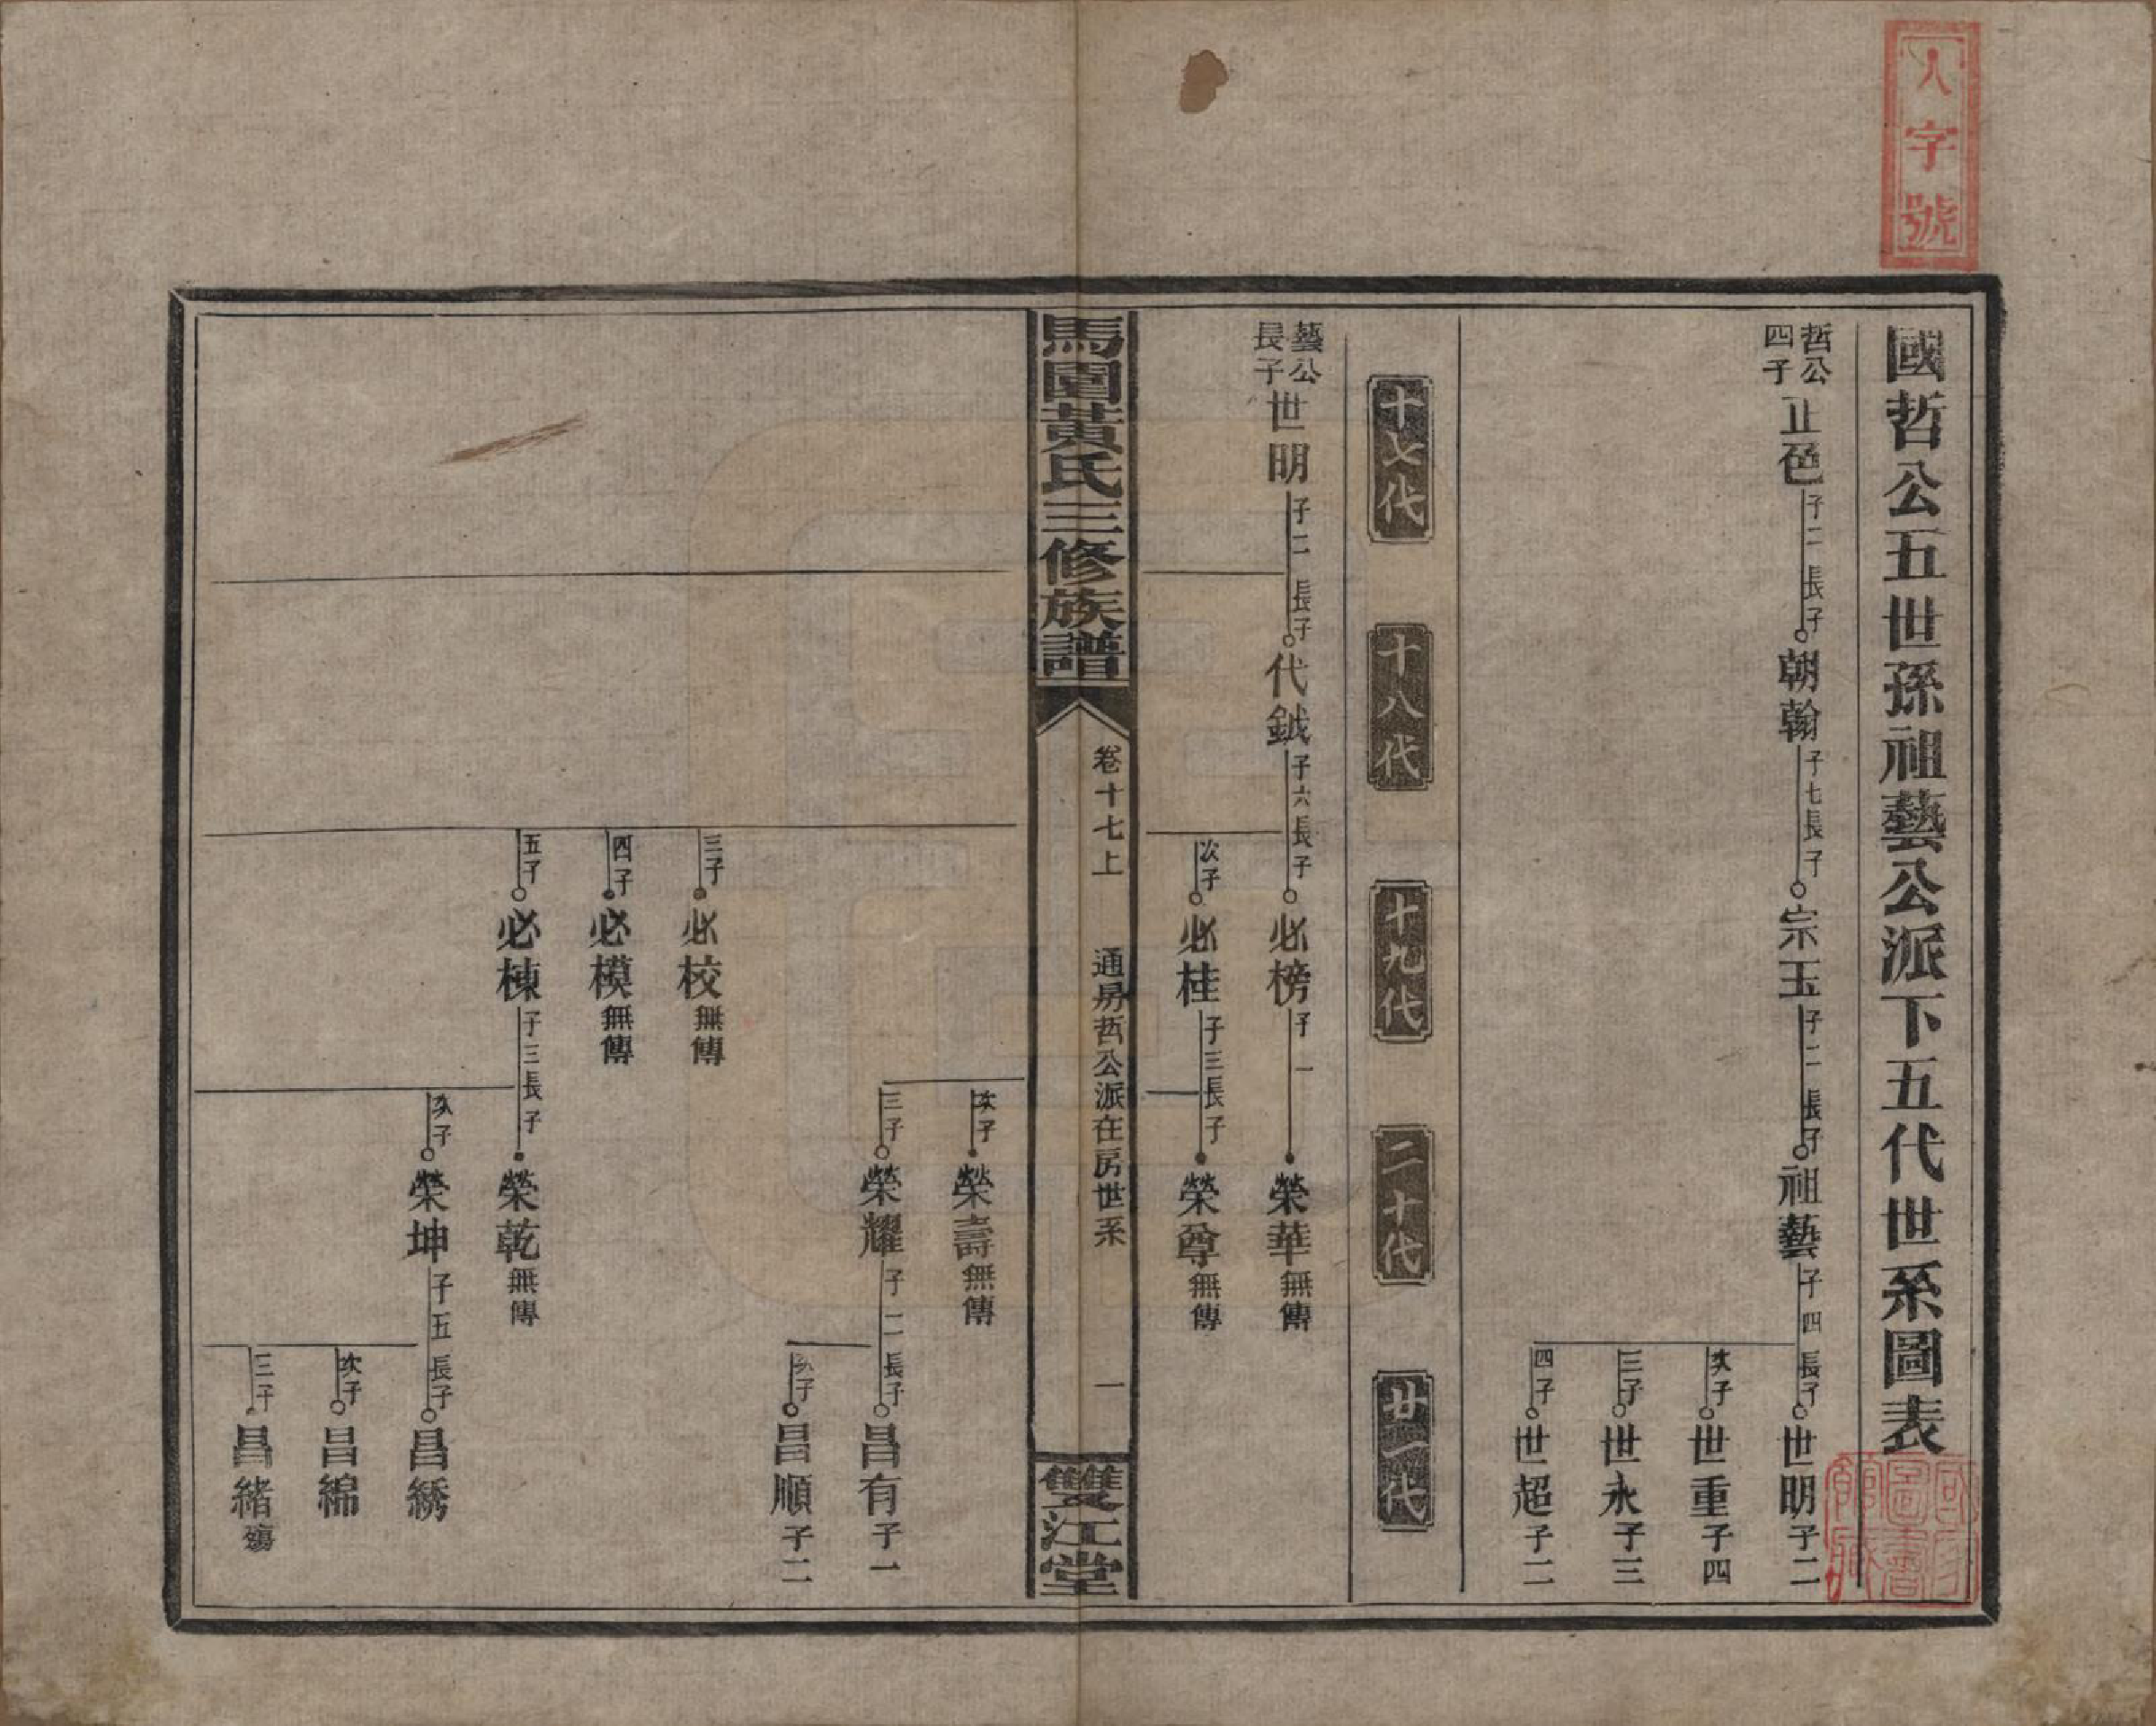 人字號
國哲公五世孫祖藝公派下五代世系圖表
哲公四子 正色 子二 長子 朝翰 子七 長子 宗玉 子二 長子 祖藝 子四 長子 世明 子二
次子 世重 子四
三子 世永 子三
四子 世超 子二
十七代 十八代 十九代 二十代 廿一代
藝公長子 世明 子二 長子 代鉞 子六 長子 必榜 子一 榮華 無傳
次子 必桂 子三 長子 榮尊 無傳
馬園黃氏三修族譜 卷十七上 通易哲公派在房世系 一 雙江堂
次子 榮壽 無傳
三子 榮耀 子二 長子 昌有 子一
次子 昌順 子二
三子 必校 無傳
四子 必模 無傳
五子 必棟 子三 長子 榮乾 無傳
次子 榮坤 子五 長子 昌綉
次子 昌綿
三子 昌緒 殤
國家圖書館藏